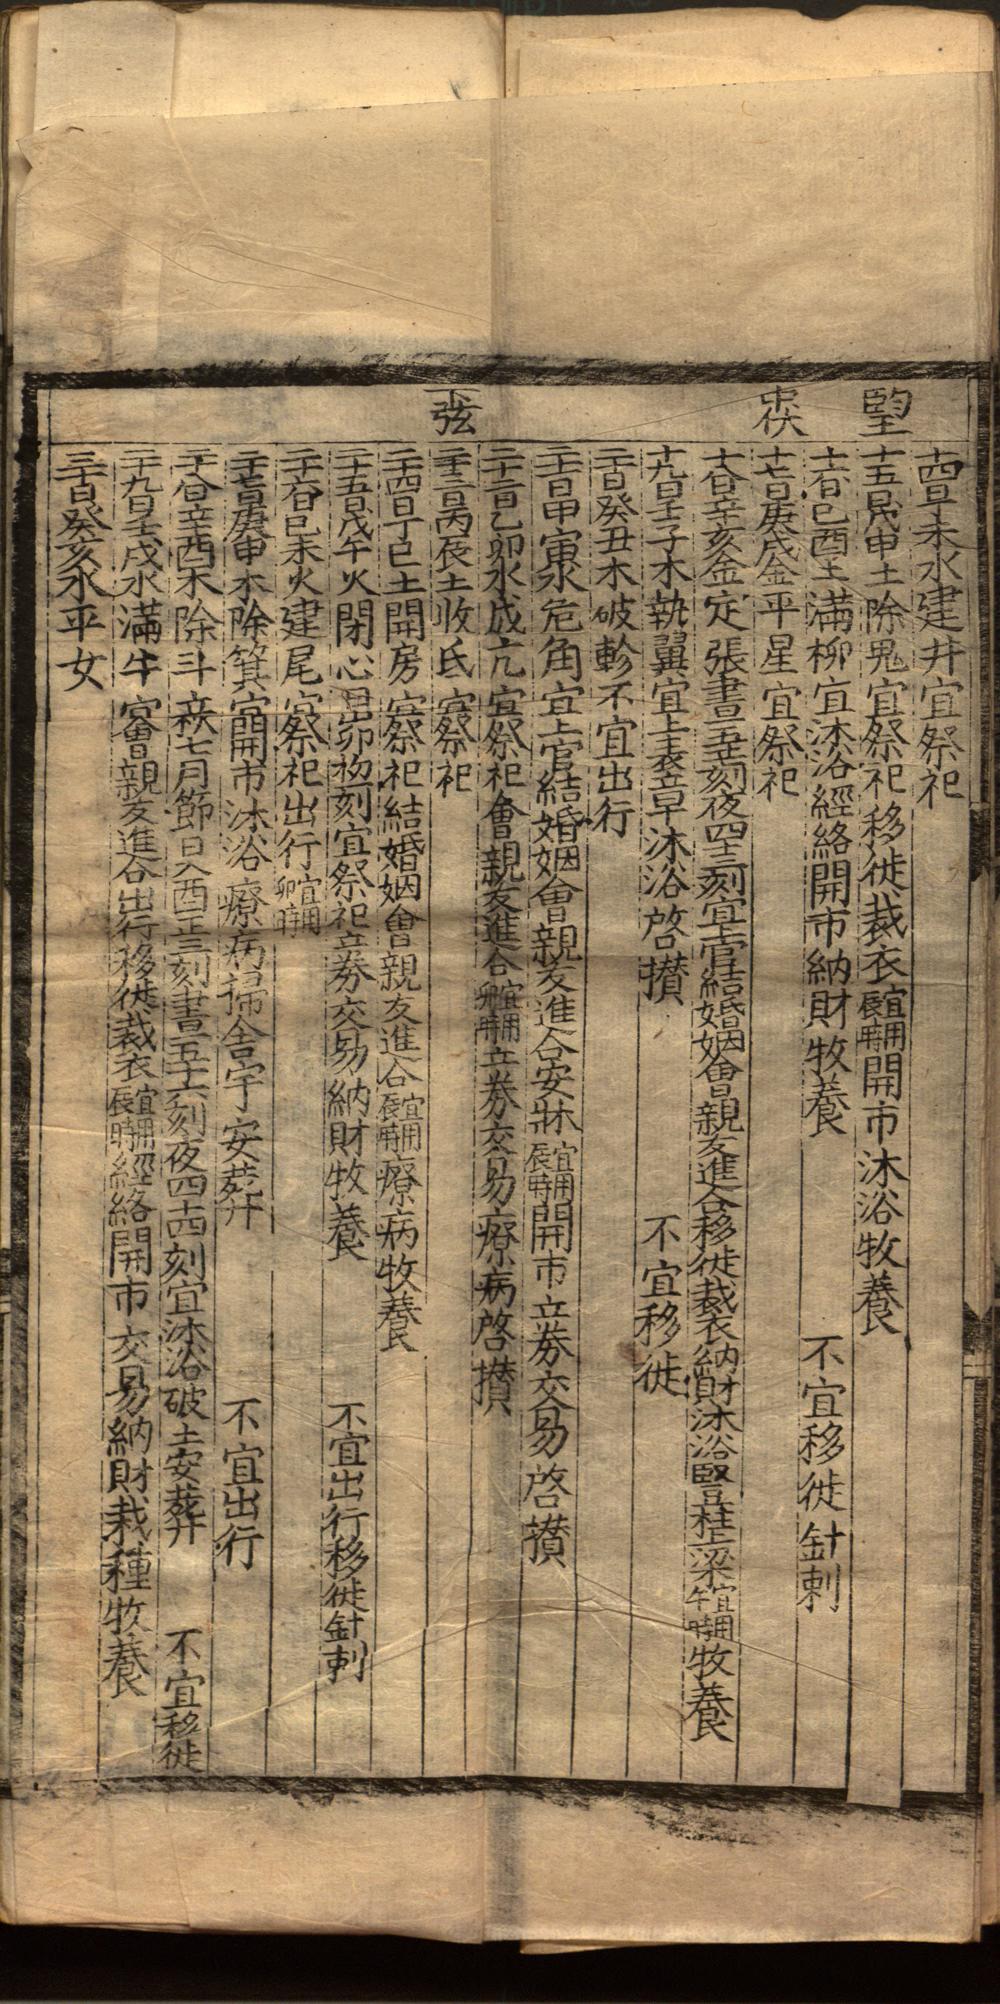 十四日丁未水建井宜祭祀
望 十五日戊申土除鬼宜祭祀移徙裁衣宜用辰時開市沐浴牧養
十六日己酉土滿柳宜沐浴經絡開市納財牧養 不宜移徙針刺
末伏 十七日庚戌金平星宜祭祀
十八日辛亥金定張晝五十七刻夜四十三刻宜上官結婚姻會親友進合移徙裁衣納財沐浴竪柱上梁宜用午時牧養
十九日壬子木執翼宜上表章沐浴啓攢 不宜移徙
二十日癸丑木破軫不宜出行
二十一日甲寅水危角宜上官結婚姻會親友進合安牀宜用辰時開市立券交易啓攢
二十二日乙卯水成亢宜祭祀會親友進合宜用卯時立券交易療病啓攢
下弦 二十三日丙辰土收氐宜祭祀
二十四日丁巳土開房宜祭祀結婚姻會親友進合宜用辰時療病牧養
二十五日戊午火閉心日出卯初刻宜祭祀立券交易納財牧養 不宜出行移徙針刺
二十六日己未火建尾宜祭祀出行宜用卯時
二十七日庚申木除箕宜開市沐浴療病掃舍宇安葬 不宜出行
二十八日辛酉木除斗 七月節日入酉正三刻晝五十六刻夜四十四刻宜沐浴破土安葬 不宜移徙
二十九日壬戌水滿牛宜會親友進合出行移徙裁衣宜用辰時經絡開市交易納財栽種牧養
三十日癸亥水平女